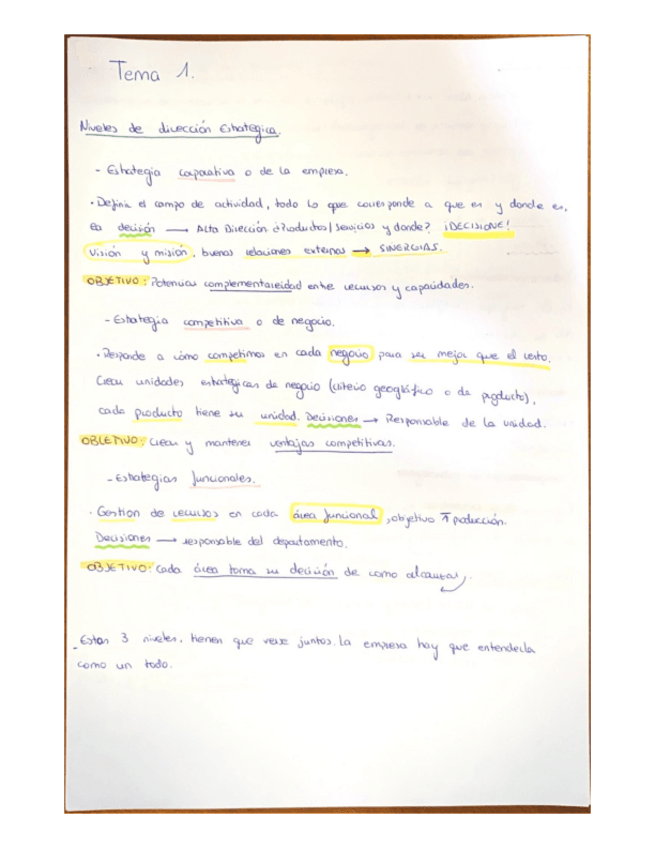 Tema 1.
Niveles de dirección Estratégica.
- Estrategia corporativa o de la empresa.
• Define el campo de actividad, todo lo que corresponde a que es y donde es,
la decisión → Alta Dirección ¿Productos/servicios y donde? ¡DECISIONE!
Visión y misión, buenas relaciones externas → SINERGIAS.
OBJETIVO: Potenciar complementareidad entre recursos y capacidades.
- Estrategia competitiva o de negocio.
• Responde a cómo competimos en cada negocio para ser mejor que el resto.
Crean unidades estratégicas de negocio (criterio geográfico o de producto),
cada producto tiene su unidad. Decisiones → Responsable de la unidad.
OBJETIVO: Crear y mantener ventajas competitivas.
- Estrategias funcionales.
• Gestión de recursos en cada área funcional, objetivo ↑ producción.
Decisiones → responsable del departamento.
OBJETIVO: Cada área toma su decisión de como alcanzar,
- Estan 3 niveles, tienen que verse juntos. La empresa hay que entenderla
como un todo.